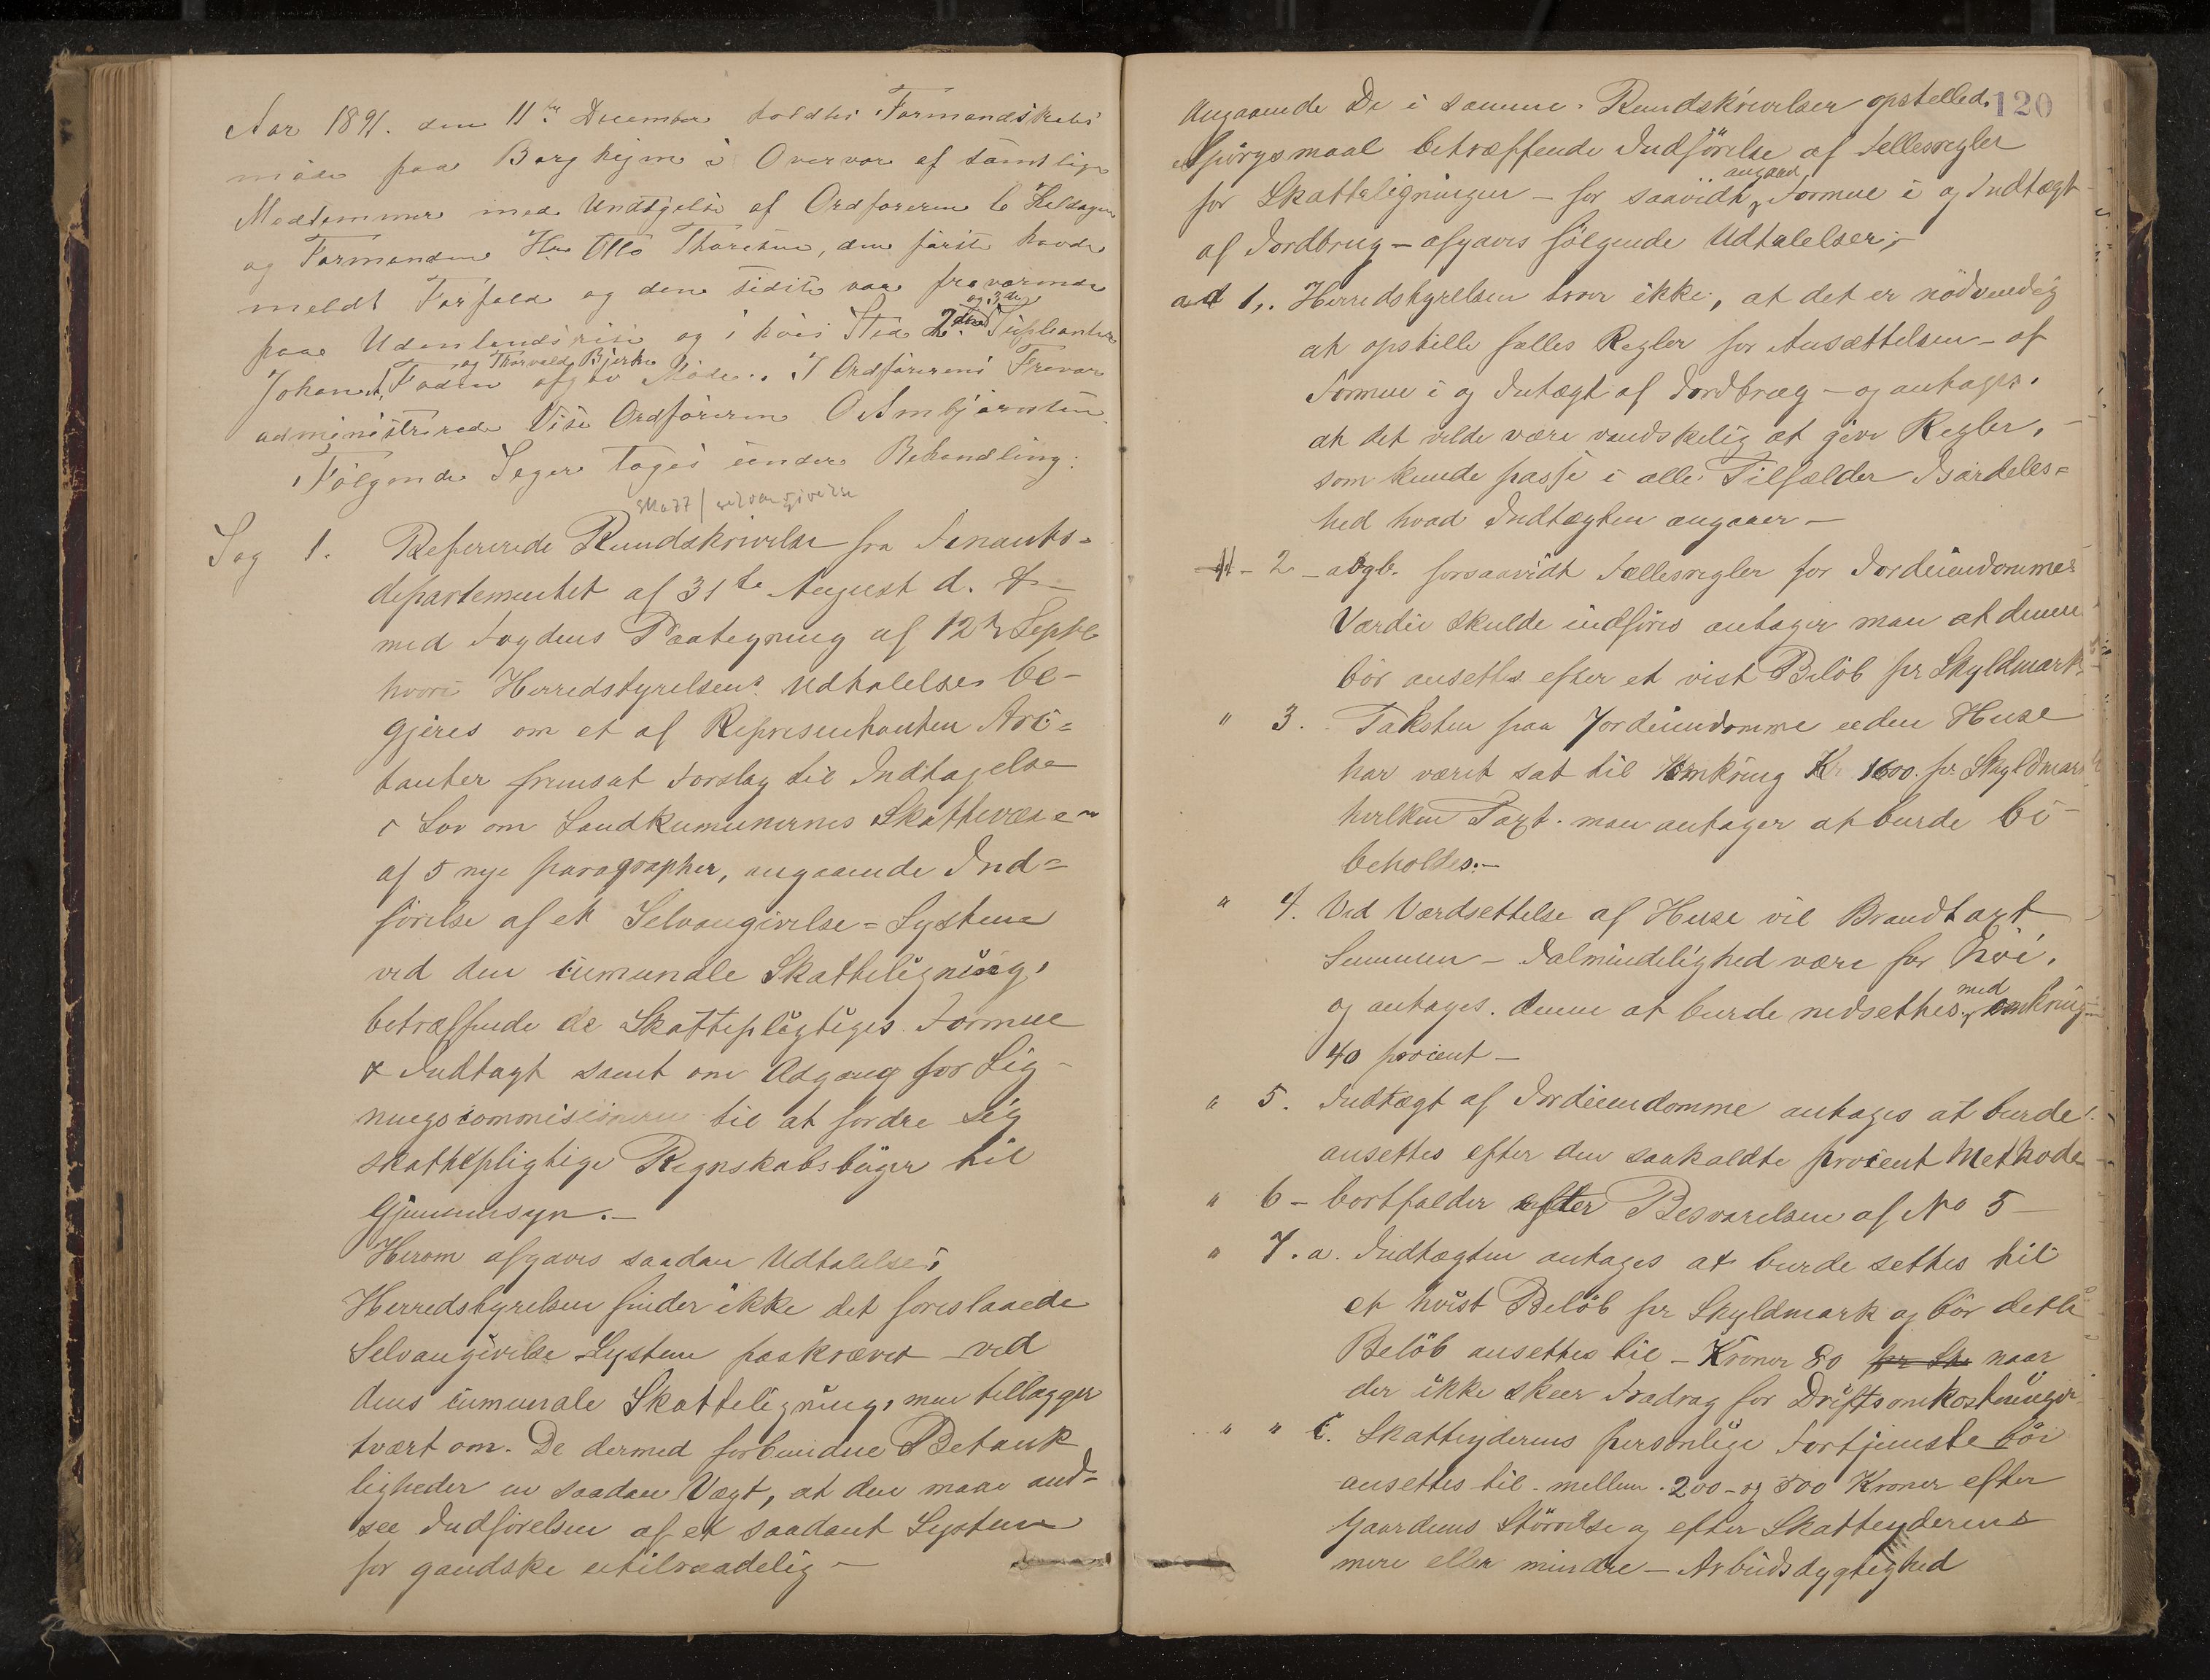 Aar 1891. den 11te December holdtes Formandskabs
møde paa Borgheim i Overvær af samtlige
Medlemmer med Undtagelse af Ordføreren C
og Formanden Hr Otto Thoresen, den første havde
meldt Forfald og den sidste var fraværende
og 3die
paa Udenlandsreise og i hvis Sted 2den Supleanter
og Thorvald Bjerke
Johan A. Foden afgav Møde. I Ordførerens Fravær
administrerede Vise Ordføreren O Ambjørnsen.
Følgende Sager toges under Behandling:
Skatt / selvangivelse
Sag 1. Refererede Rundskrivelse fra Finants-
departementet af 31te August d. A
med Fogdens Paategning af 12te Septb
hvori Herredstyrelsens Udtalelse be-
gjæres om et af Representanten Arc-
tander fremsat Forslag til Indtagelse
i Lov om Landkumunernes Skattevæsen
af 5 nye paragrapher, angaaende Ind=
førelse af et Selvangivelse=System
ved den cumunale Skatteligning,
betræffende de Skattepligtiges Formue
& Indtægt samt om Adgang for Lig-
ningscommisionen til at fordre sig
skattepligtige Regnskabsbøger til
Gjennemsyn.—
Herom afgaves saadan Udtalelse;
Herredstyrelsen finder ikke det foreslaaede
Selvangivelse System paakrævet ved
dens cumunale Skatteligning, men tillægger
tvært om. De dermed forbundne Betænk
ligheder en saadan Vægt, at den maae and-
see Indførelsen af et saadant System
for gandske utilraadelig —
120
Angaaende De i samme Rundskrivelser opstilled.
Spörgsmaal betræffende Indförelse af Fellesregler
angaaed.
for Skatteligningen — for saavidt Formue i og Indtægt
af Jordbrug — afgaves fölgende Udtalelser;
ad 1,. Herredstyrelsen troer ikke, at det er nödvendig
at opstille fælles Regler for Ansættelsen — af
Formue i og Intægt af Jordbrug — og antages.
at det vilde være vandskelig at give Regler, —
som kunde passe i alle Tilfælder Isärdeles=
hed hvad Indtægten angaaer —
2 — forsaavidt Fællesregler for Jordeiendommes
Værdie skulde indføres antager man at denne
bör ansettes efter et vist Belöb pr Skyldmark.
" 3. Taksten paa Jordeiendomme uden Huse
har været sat til omkring Kr 1600. pr Skyldmark
hvilken Taxt. man antager at burde bi-
beholdes.—
" 4. Ved Værdsettelse af Huse vil Brandtaxt
Summen — Ialmindelighed være for höi,
med
og antages. denne at burde nedsettes omkring
40 procent —
" 5. Indtægt af Jordeiendomme antages at burde
ansettes efter den saakaldte procent Methode
" 6 — bortfalder efter Besvarelsen af No 5 —
" 7. a. Indtægten antages at burde settes til
et hvist Belöb pr Skyldmark og bör dette
Belöb ansettes til — Kroner 80 pr Sk naar
der ikke skeer Fradrag for Driftsomkostninger
" " c. Skatteyderens personlige Fortjeneste bör
ansettes til mellem 200 — og 800 Kroner efter
Gaardens Störrelse og efter Skatteyderens
mere eller mindre — Arbeidsdygtighed